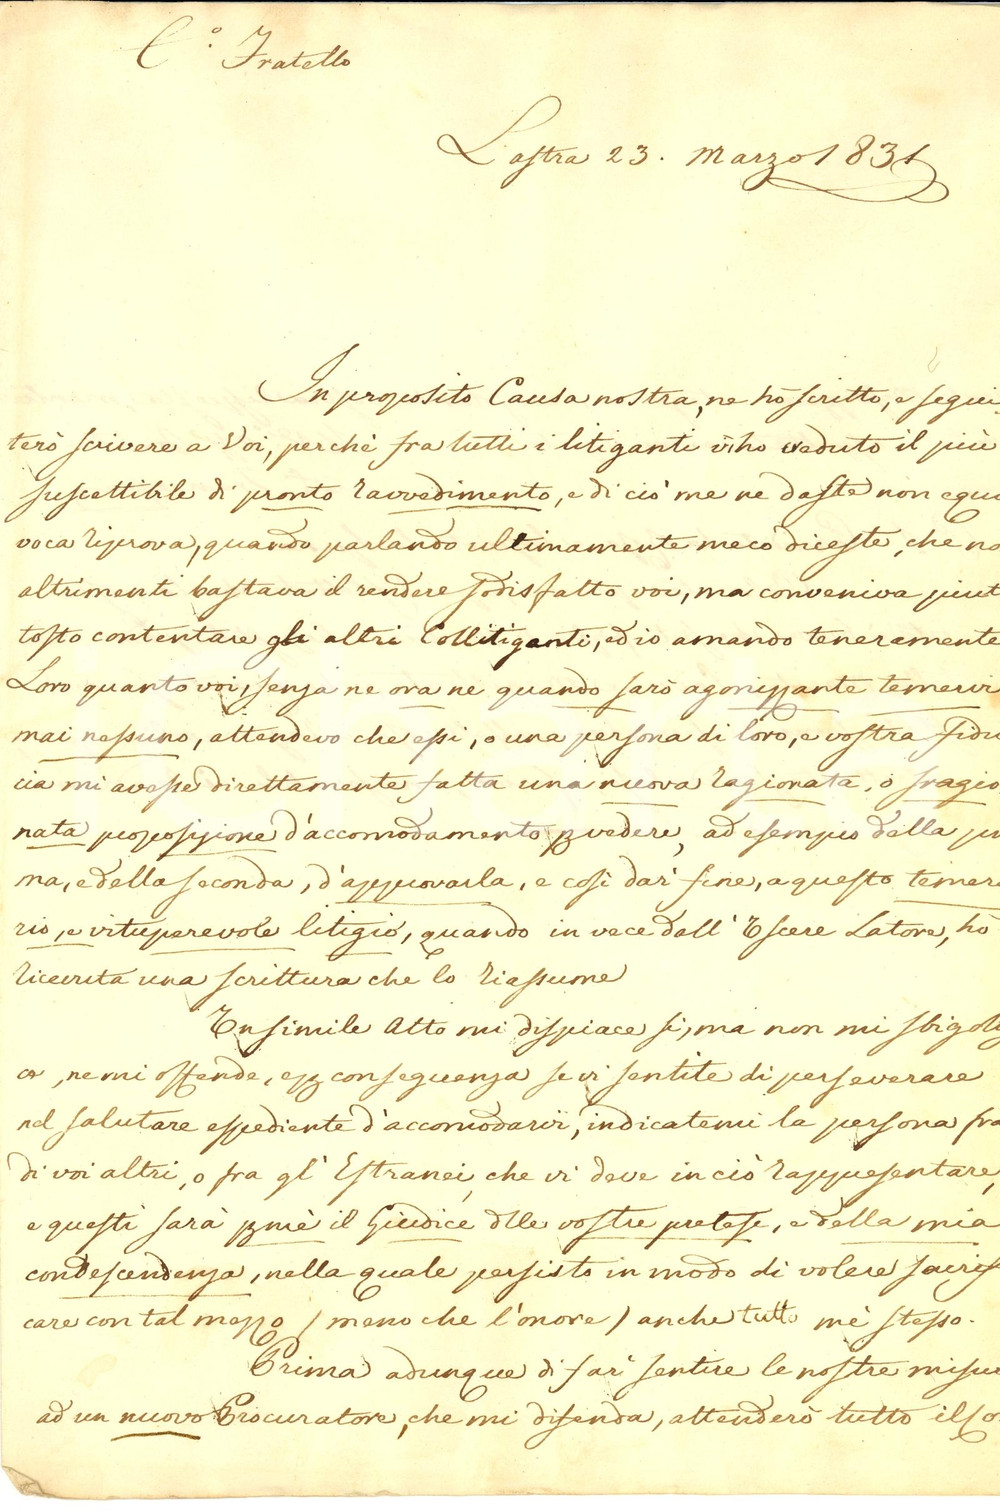 C.o Fratello
Lastra 23. Marzo 1831
In proposito Causa nostra, ne hò scritto, e segui
terò scrivere a Voi, perchè fra tutti i litiganti v'ho veduto il più
suscettibile di pronto ravvedimento, e di ciò me ne daste non equi
voca riprova, quando parlando ultimamente meco diceste, che no
altrimenti bastava il rendere sodisfatto voi, ma conveniva piut
tosto contentare gli altri Collitiganti, ed io amando teneramente
Loro quanto voi, senza ne ora ne quando sarò agonizzante temervi
mai nessuno, attendevo che essi, o una persona di loro, e vostra fidu
cia mi avesse direttamente fatta una nuova ragionata, o sragio
nata proposizione d'accomodamento p vedere, ad esempio della pri
ma, e della seconda, d'approvarla, e così dar fine, a questo temera
rio, e vituperevole litigio, quando in vece dell' Escere Latore, hò
ricevuta una scrittura che lo riassume
Un simile Atto mi dispiace si, ma non mi sbigoti
ce, ne mi offende, e p conseguenza se vi sentite di perseverare
nel salutare espediente d'accomodarvi, indicatemi la persona fra
di voi altri, o fra gl' Estranei, che vi deve in ciò rappresentare,
e questi sarà p me il Giudice dlle vostre pretese, e della mia
condescendenza, nella quale persisto in modo di volere sacrifi
care con tal mezzo / meno che l'onore / anche tutto mè stesso.
Prima adunque di far sentire le nostre misur
ad un nuovo Procuratore, che mi difenda, attenderò tutto il co